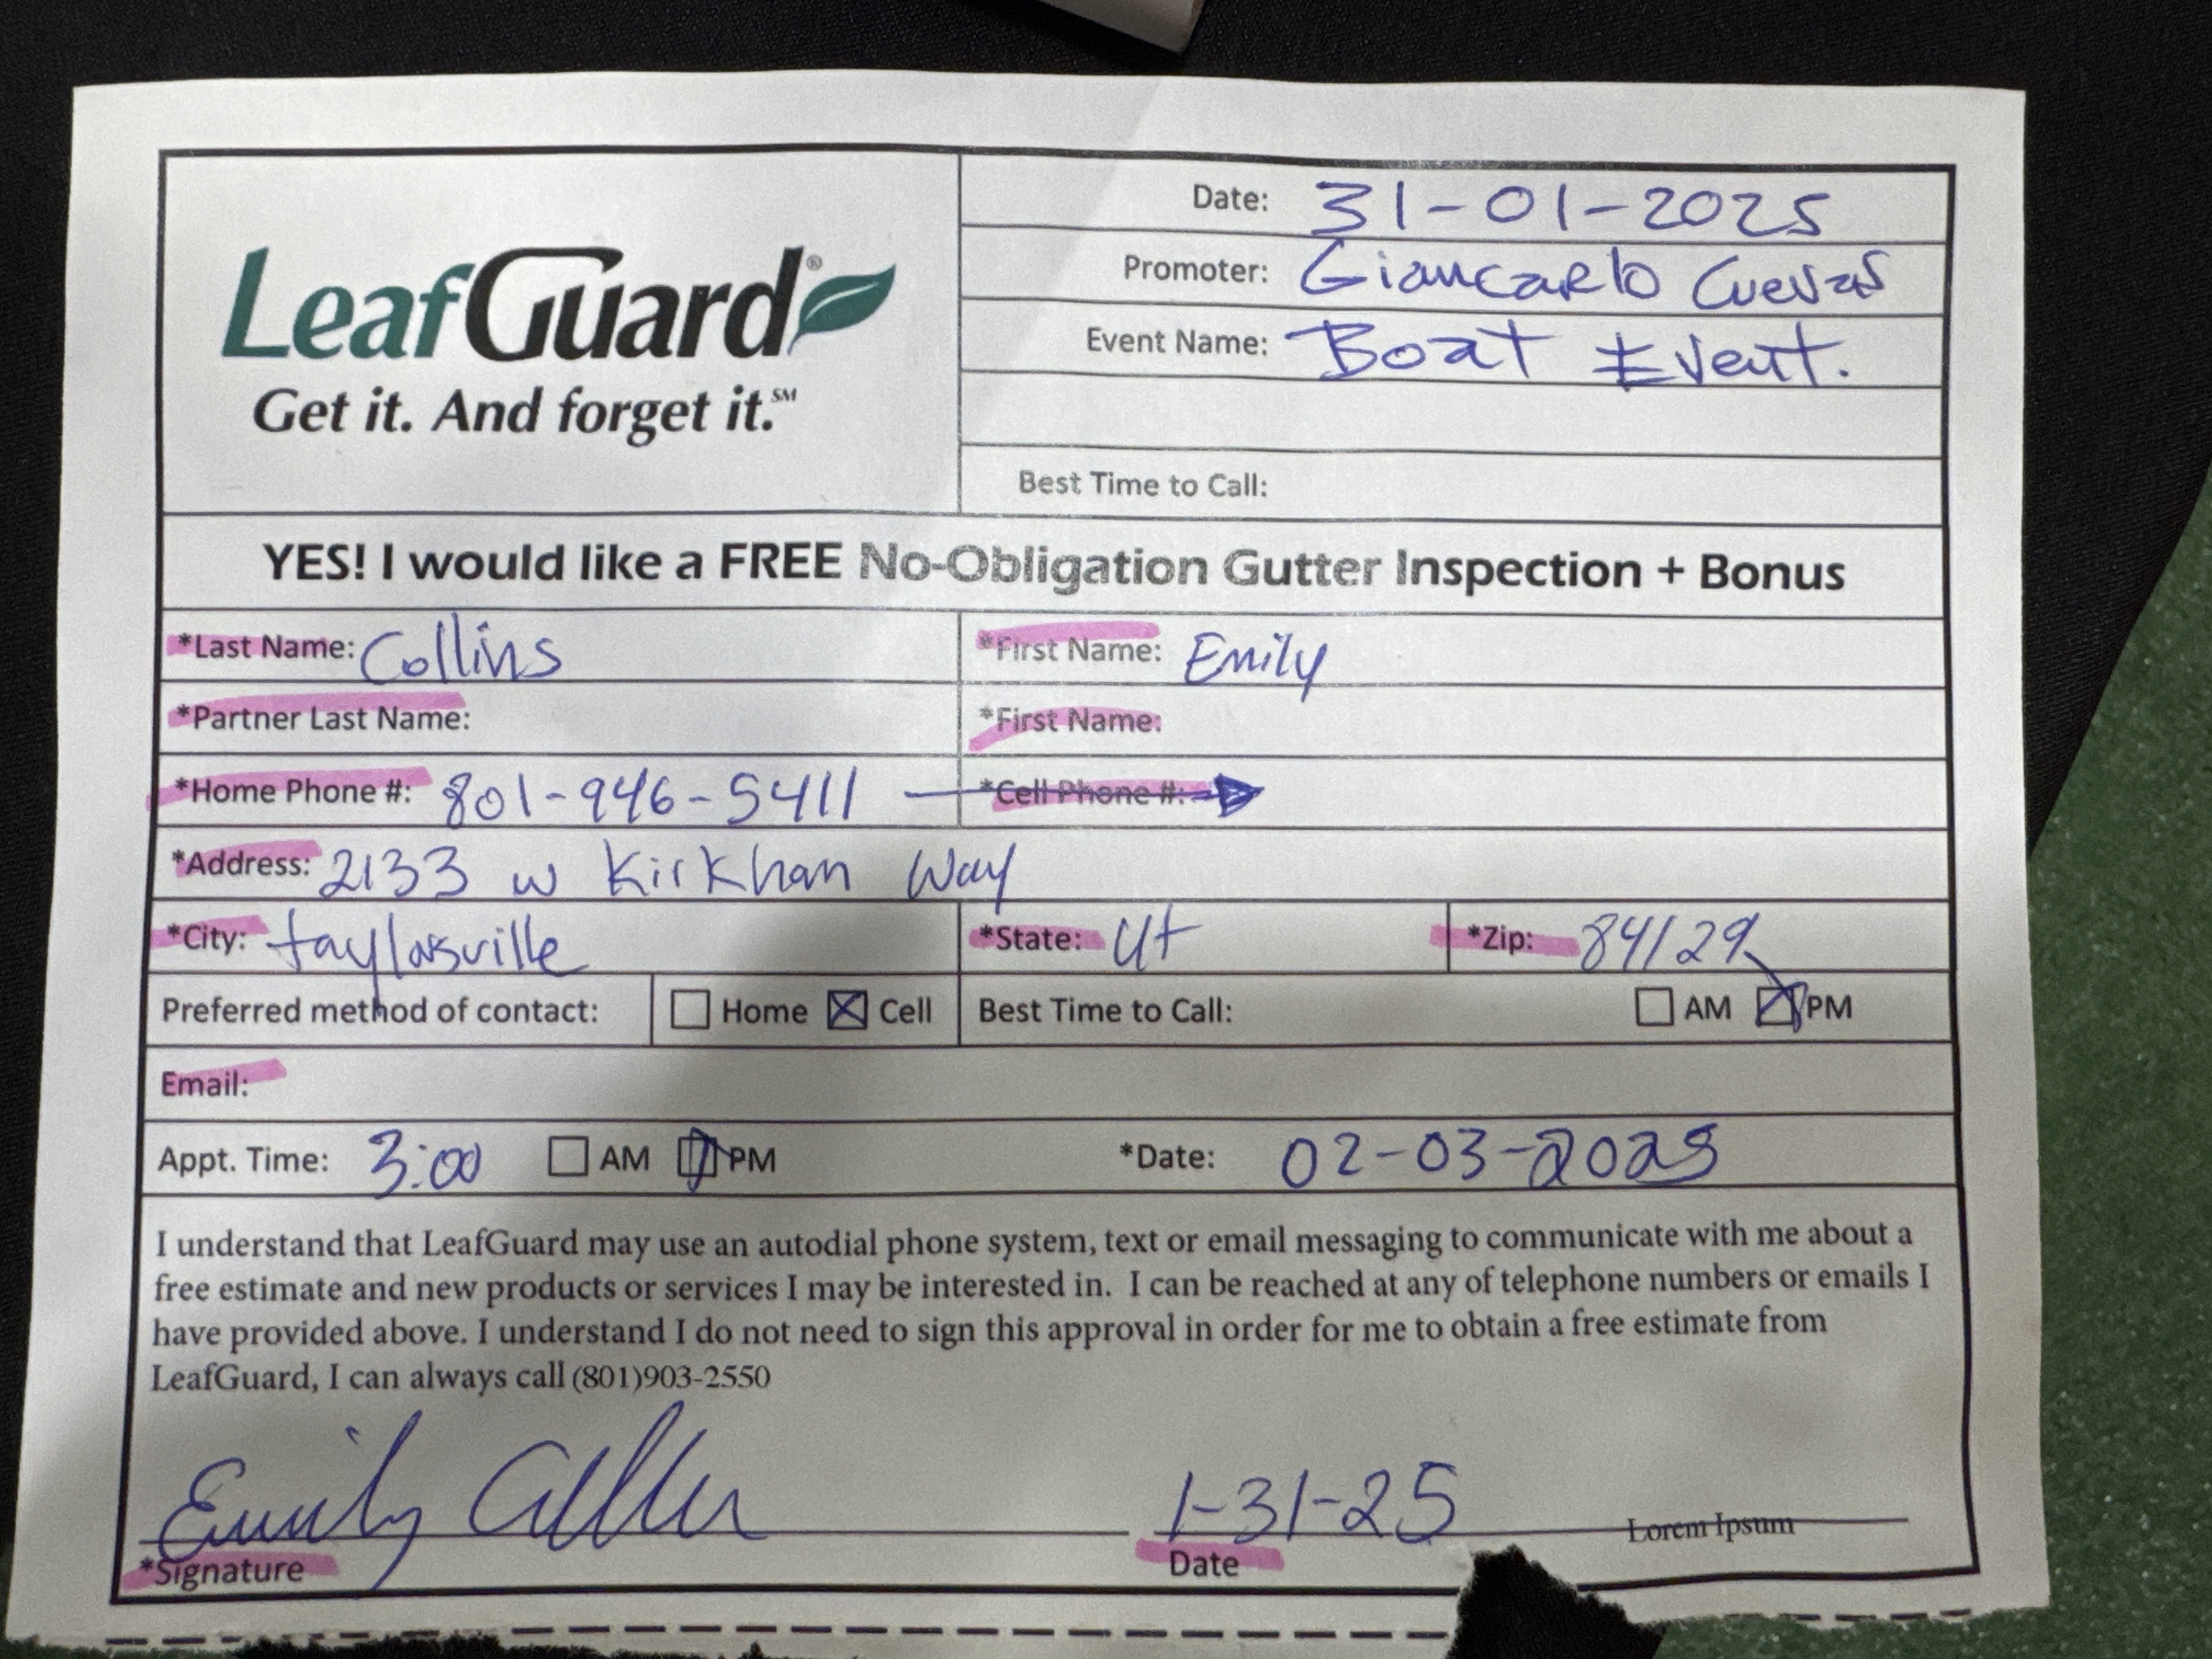 LeafGuard®
Get it. And forget it.℠
Date: 31-01-2025
Promoter: Giancarlo Cuevas
Event Name: Boat Event.
Best Time to Call:
YES! I would like a FREE No-Obligation Gutter Inspection + Bonus
*Last Name: Collins *First Name: Emily
*Partner Last Name: *First Name:
*Home Phone #: 801-946-5411 *Cell Phone #:
*Address: 2133 w Kirkhan Way
*City: taylorsville *State: Ut *Zip: 84129
Preferred method of contact: Home Cell Best Time to Call: AM PM
Email:
Appt. Time: 3:00 AM PM *Date: 02-03-2025
I understand that LeafGuard may use an autodial phone system, text or email messaging to communicate with me about a
free estimate and new products or services I may be interested in. I can be reached at any of telephone numbers or emails I
have provided above. I understand I do not need to sign this approval in order for me to obtain a free estimate from
LeafGuard, I can always call (801)903-2550
Emily 1-31-25 Lorem Ipsum
*Signature Date